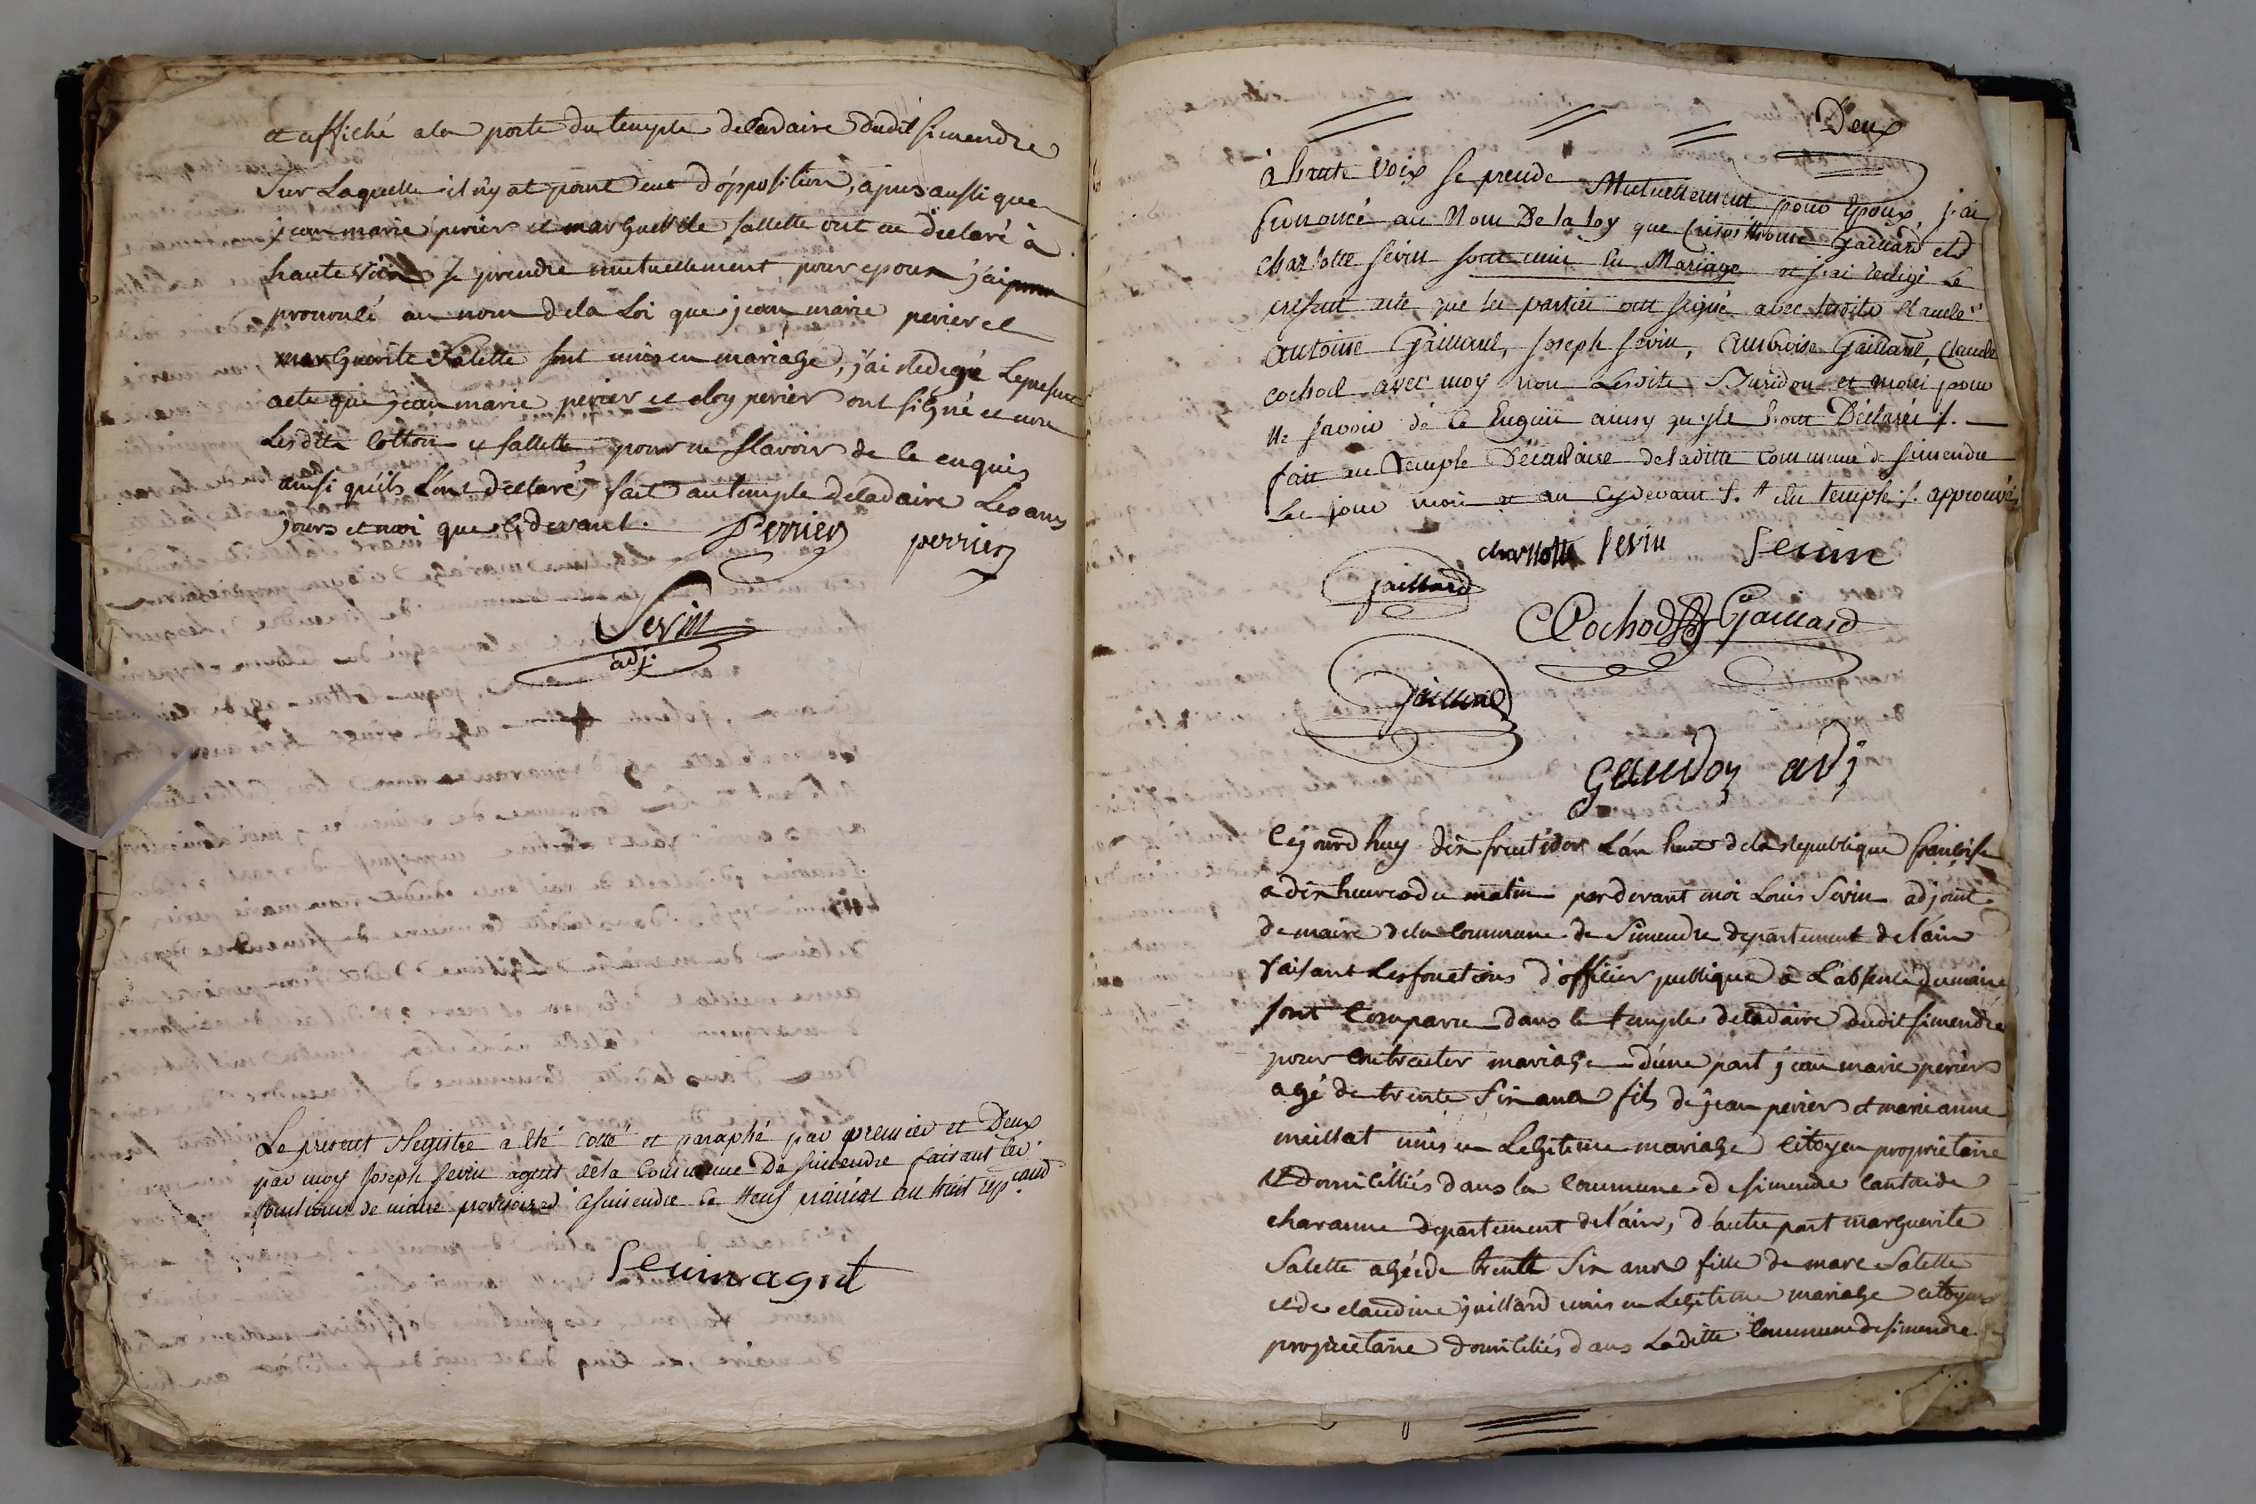 et affiché a la porte du temple decadaire dudit simendre
sur Laquelle il n'y at point eut d'opposition, apres aussi que
jean marie perier et marguerite sallette ont eu declaré à
haute voix se prendre mutuellement pour epoux j'ai
prononcé au nom de la Loi que jean marie perier et
marguerite Salette sont unis en mariage, j'ai redegé Le present
acte que jean marie perier et eloy perier ont signé et non
Lesdits Cotton et sallette pour ne scavoir de ce enquis
ainsi quils L'ont declaré, fait au temple decadaire Les ans
jours et moi que cy devant.
Perrier perrier
Sevin
adj.
Le present Registre a eté cotté et paraphé par premier et Deux
par moy Joseph Sevin agent de la Commune De Simendre faisant les
fonctions de maire provisoire à simendre ce neuf
Sevin agent
Deux
à haute voix se prendre Mutuellement pour Epoux, j'ai
prononcé au Nom De la loy que Gaillard et
charlotte sevin sont unis En Mariage et j'ai redigé Le
present acte que les parties ont signé avec
antoine Gaillard, Joseph Sevin, Ambroise Gaillard, Claude
cochod avec moy non Lesdits et pour
Ne savoir de ce Enquis ainsy qu'ils L'ont Déclaré /. —
fait au Temple Décadaire de laditte Commune de simendre
Les jour mois et an Cydevant /. du temple /. approuvé
charllotte sevin Seuin
Gaillard
CCochod Gaillard
Gaillard
Gaudoz adj
Cejourd huy dix fructidor L'an huit de la Republique francoise
a dix heures du matin pardevant moi Louis Sevin adjoint
de maire de la Commune de Simendre departement de l'ain
faisant Les fonctions d'officier publique à L'absence du maire
sont Comparu dans le temple decadaire dudit simendre
pour Contracter mariage d'une part jean marie perier
agé de trente six ans fils de jean perier et marie anne
meillat unis en Legitime mariage citoyen proprietaire
et domicilliés dans la Commune de simendre canton de
charanne departement de l'ain, d'autre part marguerite
Salette agée de trente six ans fille de marc Salette
et de claudine juillard unis en Legitime mariage citoyens
proprietaire domiciliés dans Laditte Commune de simendre